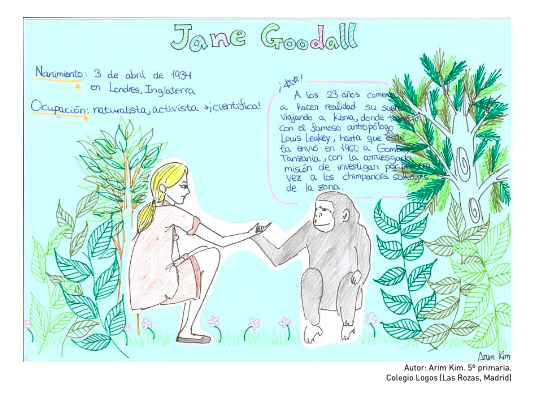 Jane Goodall
Nacimiento: 3 de abril de 1934
en Londres, Inglaterra
Ocupación: naturalista, activista → ¡científica!
A los 23 años
a hacer realidad su
viajando a Kenia, donde
con el famoso antropólogo
Louis Leakey, hasta que
la envió en 1960 a
Tanzania, con la arriesgada
misión de investigar por
vez a los chimpancés
de la zona.
Arim Kim
Autor: Arim Kim. 5º primaria.
Colegio Logos (Las Rozas, Madrid)